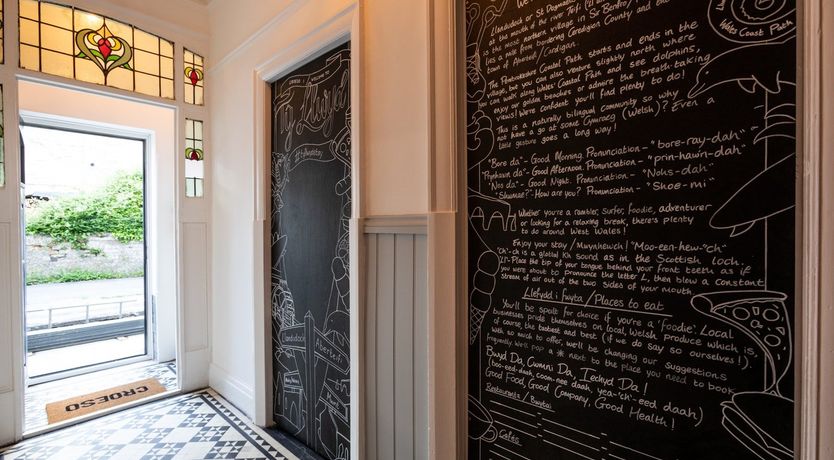 CROESO
CROESO
WELCOME TO
Tŷ Llwyd
Llandudoch
Aberteifi
Llandudoch or St Dogmaels
on the mouth of the river Teifi
is the most northern village in Sir Benfro
lies a mile from bordering Ceredigion County and the
town of Aberteifi / Cardigan.
The Pembrokeshire Coastal Path starts and ends in the
village, but you can also venture slightly north where
you can walk along Wales' Coastal Path and see dolphins,
enjoy our golden beaches or admire the breath taking
views! We're confident you'll find plenty to do!
This is a naturally bilingual community so why
not have a go at some Cymraeg (Welsh)? Even a
little gesture goes a long way!
"Bore da" - Good Morning. Pronunciation - "bore-ray-dah"
"Prynhawn da" - Good Afternoon. Pronunciation - "prin-hawn-dah"
"Nos da" - Good Night. Pronunciation - "Nohs-dah"
"Shwmae?" - How are you? Pronunciation - "Shoe-mi"
Whether you're a rambler, surfer, foodie, adventurer
or looking for a relaxing break, there's plenty
to do around West Wales!
Enjoy your stay / Mwynhewch! "Moo-een-hew-"ch"
"ch"-ch is a glottal Kh sound as in the Scottish loch.
"Ll" - Place the tip of your tongue behind your front teeth as if
you were about to pronounce the letter L, then blow a constant
stream of air out of the two sides of your mouth
Llefydd i fwyta / Places to eat
You'll be spoilt for choice if you're a 'foodie'. Local
businesses pride themselves on local, Welsh produce which is,
of course, the tastiest and best (if we do say so ourselves!).
with so much to offer, we'll be changing our suggestions
frequently. We'll pop a * next to the place you need to book
Bwyd Da, Cwmni Da, Iechyd Da!
(boo-eed daah, coom-nee daah, yea-"ch"-eed daah)
Good Food, Good Company, Good Health!
Restaurants / Bwytai
Cafés
Wales
Coast Path